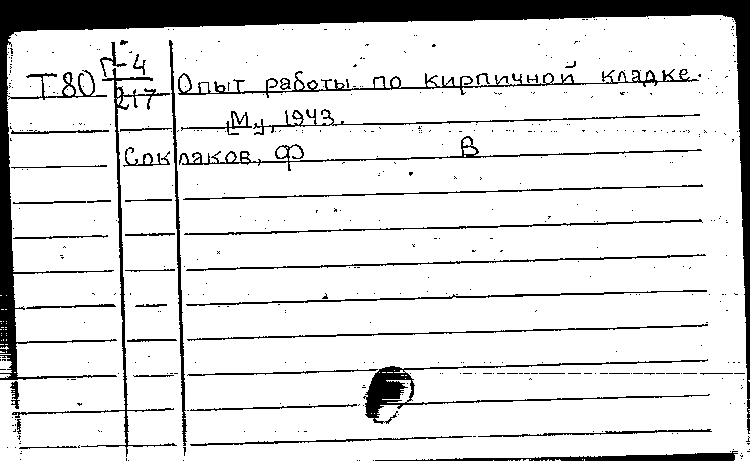 Т80 Г-4
217
Опыт работы по кирпичной кладке.
[М.], 1943.
Соклаков, Ф В